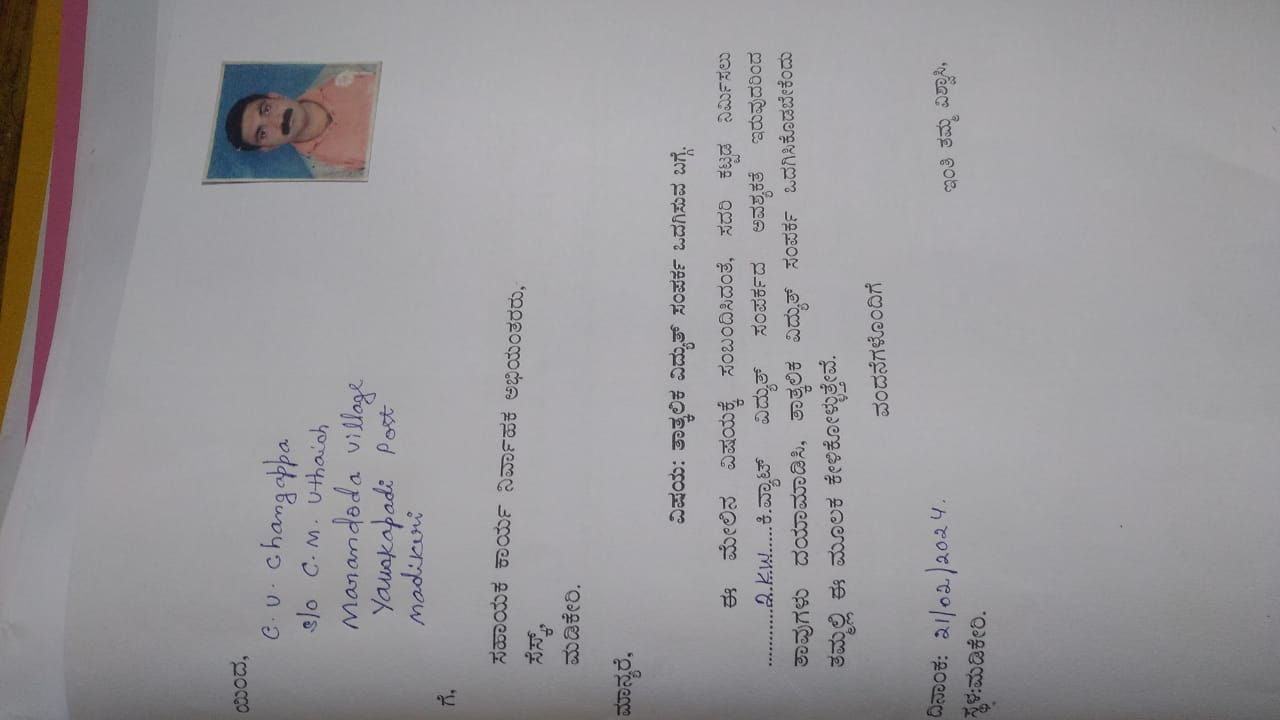 ಯಿಂದ,
C. U. Changappa
S/o C. M. Uthaiah
Marandoda Village
Yavakapadi Post
Madikeri
ಗೆ,
ಸಹಾಯಕ ಕಾರ್ಯ ನಿರ್ವಾಹಕ ಅಭಿಯಂತರರು,
ಸೆಸ್ಕ್,
ಮಡಿಕೇರಿ.
ಮಾನ್ಯರೆ,
ವಿಷಯ: ತಾತ್ಕಲಿಕ ವಿದ್ಯುತ್ ಸಂಪರ್ಕ ಒದಗಿಸುವ ಬಗ್ಗೆ.
ಈ ಮೇಲಿನ ವಿಷಯಕ್ಕೆ ಸಂಬಂದಿಸಿದಂತೆ, ಸದರಿ ಕಟ್ಟಡ ನಿರ್ಮಿಸಲು
............2.KW......ಕಿ.ವ್ಯಾಟ್ ವಿದ್ಯುತ್ ಸಂಪರ್ಕದ ಅವಶ್ಯಕತೆ ಇರುವುದರಿಂದ
ತಾವುಗಳು ದಯಾಮಾಡಿಸಿ, ತಾತ್ಕಲಿಕ ವಿದ್ಯುತ್ ಸಂಪರ್ಕ ಒದಗಿಸಿಕೊಡಬೇಕೆಂದು
ತಮ್ಮಲ್ಲಿ ಈ ಮೂಲಕ ಕೇಳಿಕೋಳ್ಳುತ್ತೇವೆ.
ವಂದನೆಗಳೊಂದಿಗೆ
ದಿನಾಂಕ: 21/02/2024. ಇಂತಿ ತಮ್ಮ ವಿಶ್ವಾಸಿ,
ಸ್ಥಳ:ಮಡಿಕೇರಿ.